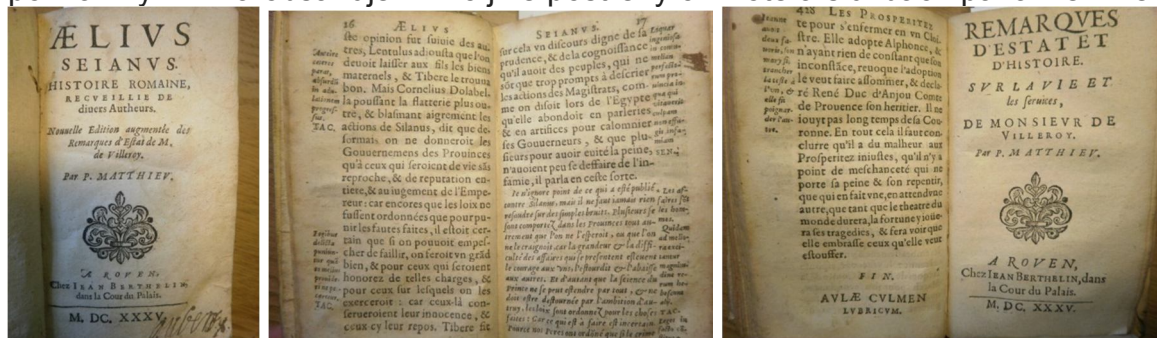 ÆLIVS
SEIANVS.
HISTOIRE ROMAINE,
RECVEILLIE DE
diuers Autheurs.
Nouuelle Edition augmentée des
Remarques d'Estat de M,
de Villeroy.
Par P. MATTHIEV.
A ROVEN,
Chez IEAN BERTHELIN,
dans la Cour du Palais.
M. DC. XXXV.
16 ÆLIVS
ste opinion fut suiuie des au-
tres, Lentulus adiousta que l'on
deuoit laisser aux fils les biens
maternels, & Tibere le trouua
bon. Mais Cornelius Dolabel.
la poussant la flatterie plus ou-
tre, & blasmant aigrement les
actions de Silanus, dit que de-
formais on ne donneroit les
Gouuernemens des Prouinces
qu'à ceux qui seroient de vie sãs
reproche, & de reputation en-
tiere, & au iugement de l'Empe-
reur: car encores que les loix ne
fussent ordonnées que pour pu-
nir les fautes faites, il estoit cer-
tain que si on pouuoit empes-
cher de faillir, on feroit vn grãd
bien, & pour ceux qui seroient
honorez de telles charges, &
pour ceux sur lesquels on les
exerceroit: car ceux-là con-
serueroient leur innocence, &
ceux cy leur repos. Tibere fit
TAC.
TAC.
SEIANVS. 17
sur cela vn discours digne de sa
prudence, & de la cognoissance
qu'il auoit des peuples, qui ne
sõt que trop prompts à descrier
les actions des Magistrats, com-
me on disoit lors de l'Egypte
qu'elle abondoit en parleries
& en artifices pour calomnier
ses Gouuerneurs, & que plu-
sieurs pour auoir euité la peine,
n'auoient peu se deffaire de l'in-
famie, il parla en ceste sorte.
Ie n'ignore point de ce qui a esté publié
contre Silanus, mais il ne faut iamais rien
resoudre sur des simples bruits. Plusieurs se
sont comportez dans les Prouinces tout au-
trement que l'on ne l'esperoit, ou que l'on
ne le craignoit, car la grandeur & la diffi-
culté des affaires qui se presentent esleuent
le courage aux vns, l'estourdit & l'abaisse
aux autres. Et d'autant que la science du
Prince ne se peut estendre par tout, & ne
doit estre destournée par l'ambition d'au-
truy, les loix sont ordonnez pour les choses
faites: Car ce qui est à faire est incertain.
SEN.
TAC.
428 LES PROSPERITEZ
te pour s'enfermer en vn Cloi-
stre. Elle adopte Alphonce, &
n'ayant rien de constant que son
inconstãce, reuoque l'adoption
le veut faire assommer, & decla-
ré René Duc d'Anjou Comte
de Prouence son heritier. Il ne
iouyt pas long temps de sa Cou-
ronne. En tout cela il faut con-
clurre qu'il a du malheur aux
Prosperitez iniustes, qu'il n'y a
point de meschanceté qui ne
porte sa peine & son repentir,
que qui en fait vne, en attend vne
autre, que tant que le theatre du
monde durera, la fortune y ioüe-
ra ses tragedies, & fera voir que
elle embrasse ceux qu'elle veut
estouffer.
FIN.
AVLÆ CVLMEN
LVBRICVM.
REMARQVES
D'ESTAT ET
D'HISTOIRE.
SVR LA VIE ET
les seruices,
DE MONSIEVR DE
VILLEROY.
Par P. MATTHIEV.
A ROVEN,
Chez IEAN BERTHELIN, dans
la Cour du Palais.
M. DC. XXXV.